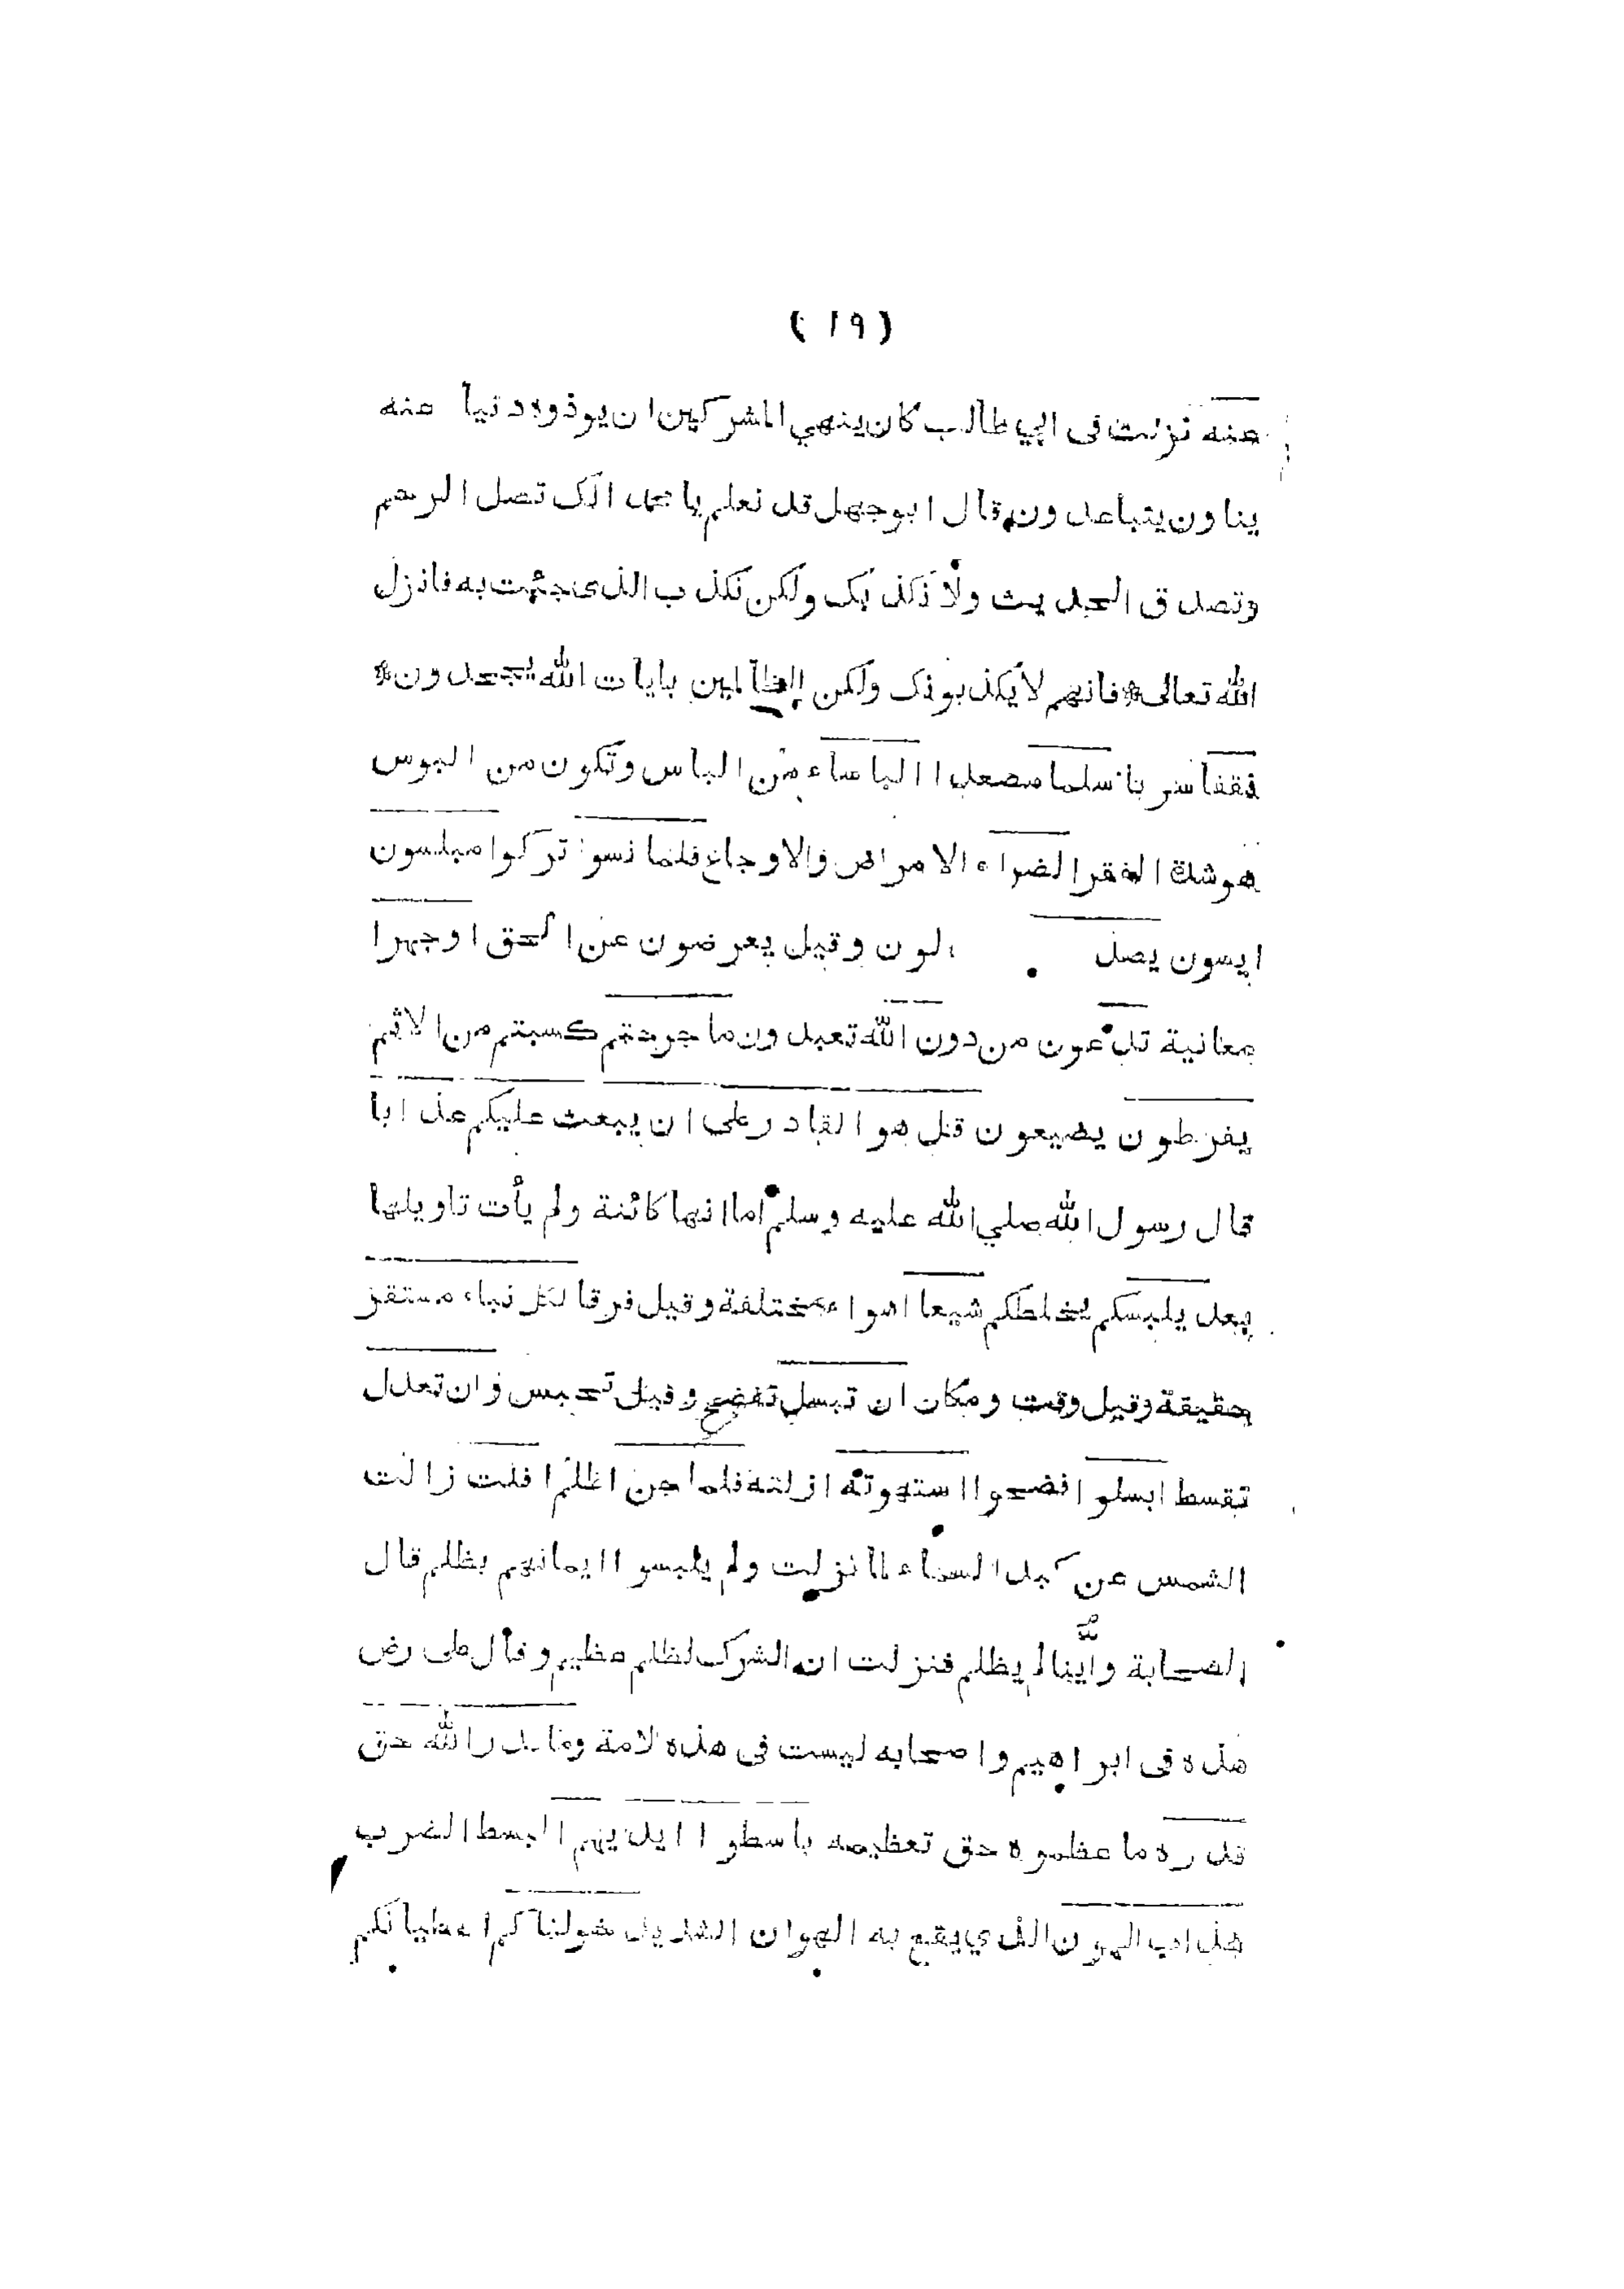 ( ١٩ )
عنه نزلت فى ابي طالب كان ينهي المشركين ان يوذوه عنه
يناون يتباعدون قال ابوجهل قد نعلم يا محمد انك تصل الرحم
وتصدق الحديث ولا نكذبك ولكن نكذب الذى جئت به فانزل
الله تعالى * فانهم لا يكذبونك ولكن الظالمين بايات الله يجحدون *
نفقا سربا سلما مصعدا الباساء من الباس وتكون من البوس
هوشدة الفقر الضراء الامراض والاوجاع فلما نسوا تركوا مبلسون
ايسون وقيل يعرضون عن الحق اوجهرا
معانية تدعون من دون الله تعبدون ما جرحتم كسبتم من الاثم
يفرطون يضيعون قل هو القادر على ان يبعث عليكم عذابا
قال رسول الله صلي الله عليه وسلم اما انها كائنة ولم يأت تاويلها
بعد يلبسكم يخلطكم شيعا اهواء مختلفة وقيل فرقا لكل نباء مستقر
حقيقة وقيل وقت ومكان ان تبسل تفضح وقيل تحبس وان تعدل
تقسط ابسلوا افضحوا استهوته ازلته فلما جن اظلم افلت زالت
الشمس عن كبد السماء لما نزلت ولم يلبسوا ايمانهم بظلم قال
الصحابة واينا لم يظلم فنزلت ان الشرك لظلم عظيم وقال على رض
هذه فى ابراهيم واصحابه ليست فى هذه لامة وما قدر الله حق
قدره ما عظموه حق تعظيمه باسطوا ايديهم البسط الضرب
عذاب الهون الذي يقع به الهوان الشديد خولناكم اعطيانكم